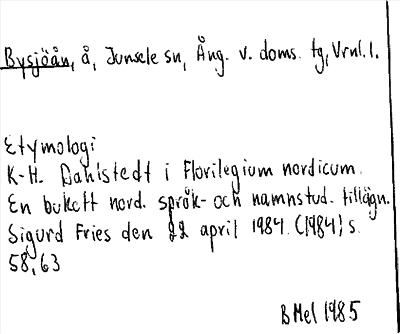 Bysjöån, å, Junsele sn, Ång. v. doms. tg, Vrnl. l.
Etymologi
K-H. Dahlstedt i Florilegium nordicum.
En bukett nord. språk- och namnstud. tillägn.
Sigurd Fries den 22 april 1984. (1984) s.
58, 63
B Mel 1985